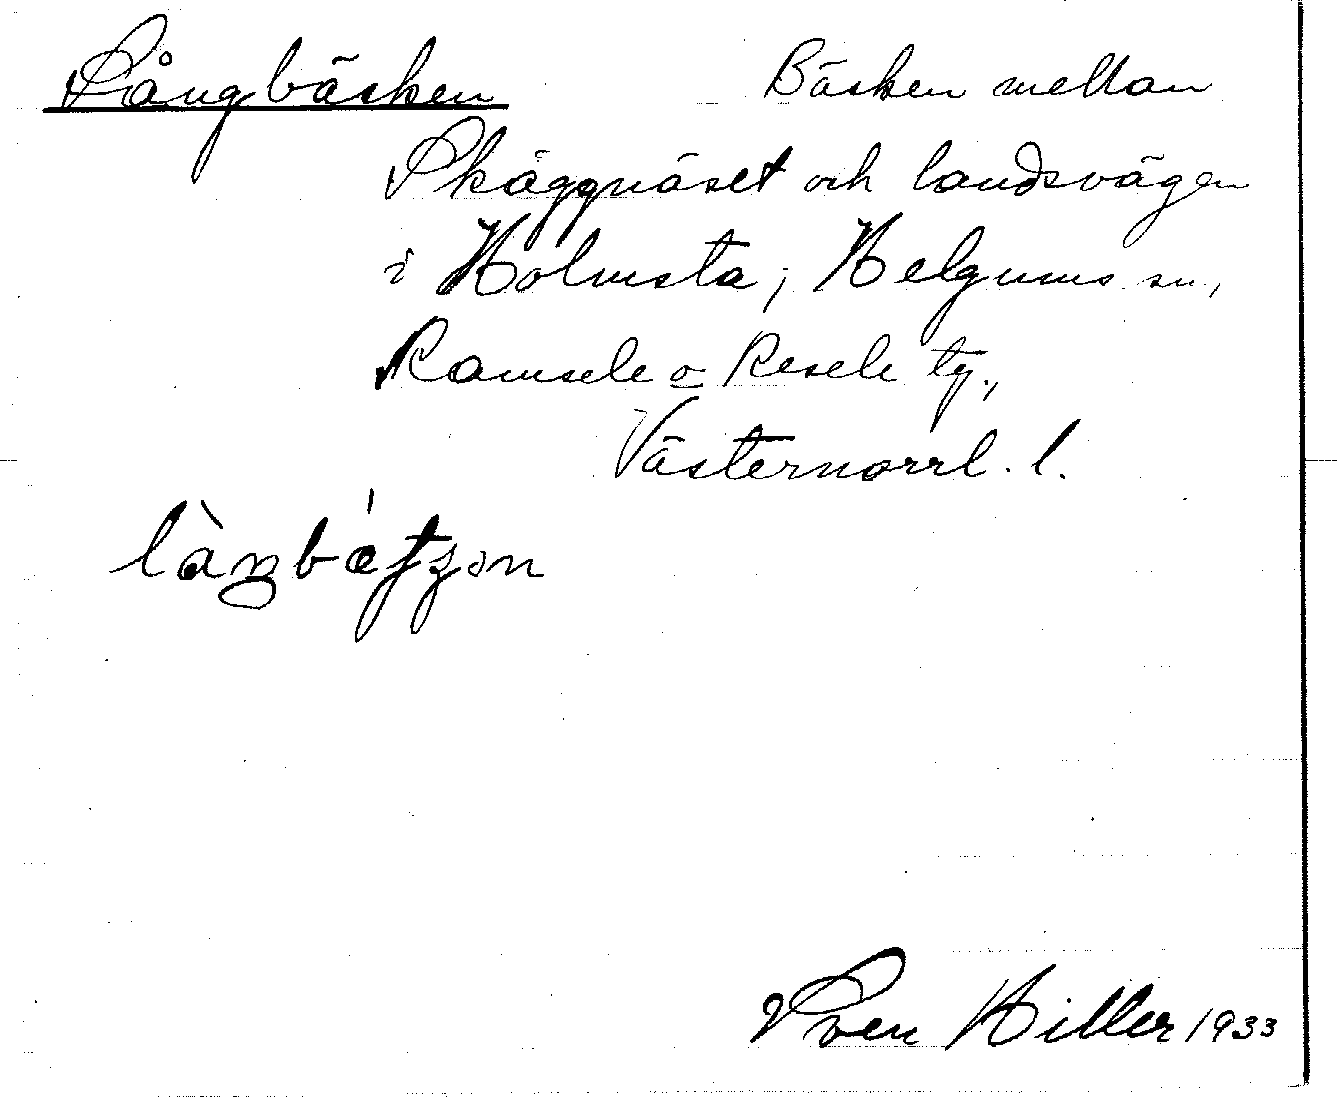 Långbäcken Bäcken mellan
Skäggnäset och landsvägen
i Holmsta, Helgums sn,
Ramsele o Resele tg.,
Västernorrl. l.
Sven Hiller 1933